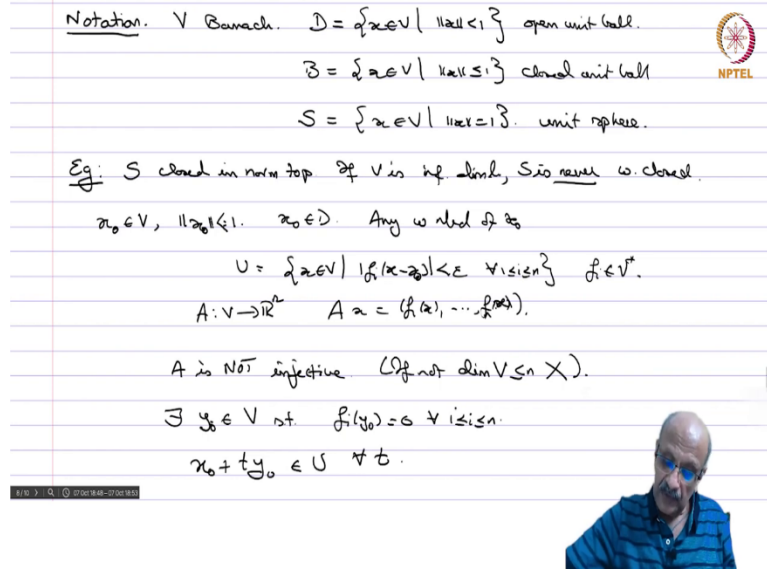 Notation. V Banach. D = {x∈V | ||x||<1} open unit ball.
NPTEL
B = {x∈V | ||x||≤1} closed unit ball
S = {x∈V | ||x||=1}. unit sphere.
Eg: S closed in norm top. If V is inf. diml, S is never w. closed.
x₀∈V, ||x₀||<1. x₀∈D. Any w nbd of x₀
U = {x∈V | |fᵢ(x-x₀)|<ε ∀ 1≤i≤n} fᵢ∈V*.
A: V→ℝⁿ A x = (f₁(x), ..., fₙ(x)).
A is NOT injective. (If not dim V ≤ n X).
∃ y₀ ∈ V st. fᵢ(y₀)=0 ∀ 1≤i≤n.
x₀ + ty₀ ∈ U ∀ t.
8/10 07 Oct 18:48–07 Oct 18:53